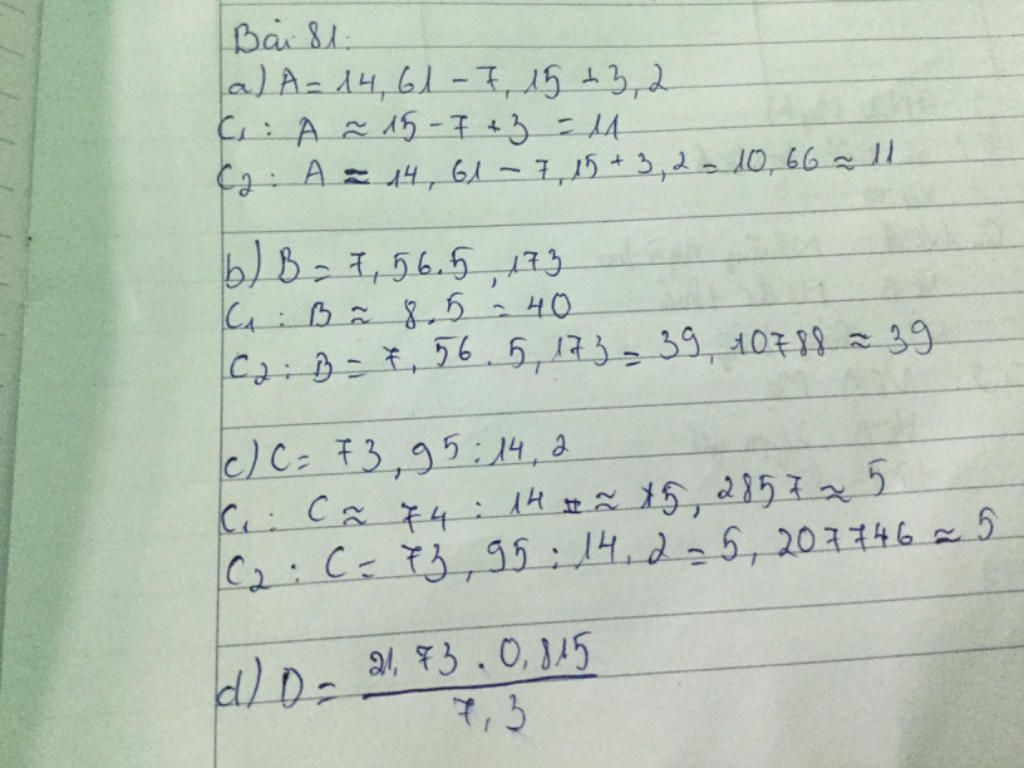 Bài 81:
a) A = 14,61 - 7,15 + 3,2
C₁ : A ≈ 15 - 7 + 3 = 11
C₂ : A ≈ 14,61 - 7,15 + 3,2 = 10,66 ≈ 11
b) B = 7,56.5,173
C₁ : B ≈ 8.5 = 40
C₂ : B = 7,56 . 5,173 = 39,10788 ≈ 39
c) C = 73,95 : 14,2
C₁ : C ≈ 74 : 14 ≈ 5,2857 ≈ 5
C₂ : C = 73,95 : 14,2 = 5,207746 ≈ 5
d) D = 21,73 . 0,815
7,3